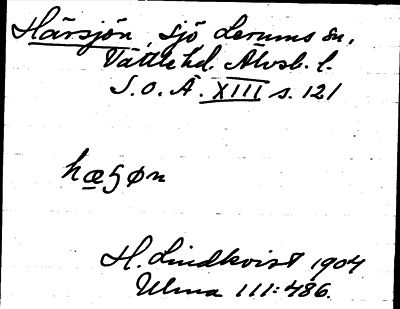 Härsjön, sjö Lerums sn,
Vättle hd. Älvsb. l.
S.O.Ä. XIII s. 121
hæꞩøn
H. Lindkvist 1904
Ulma 111:486.